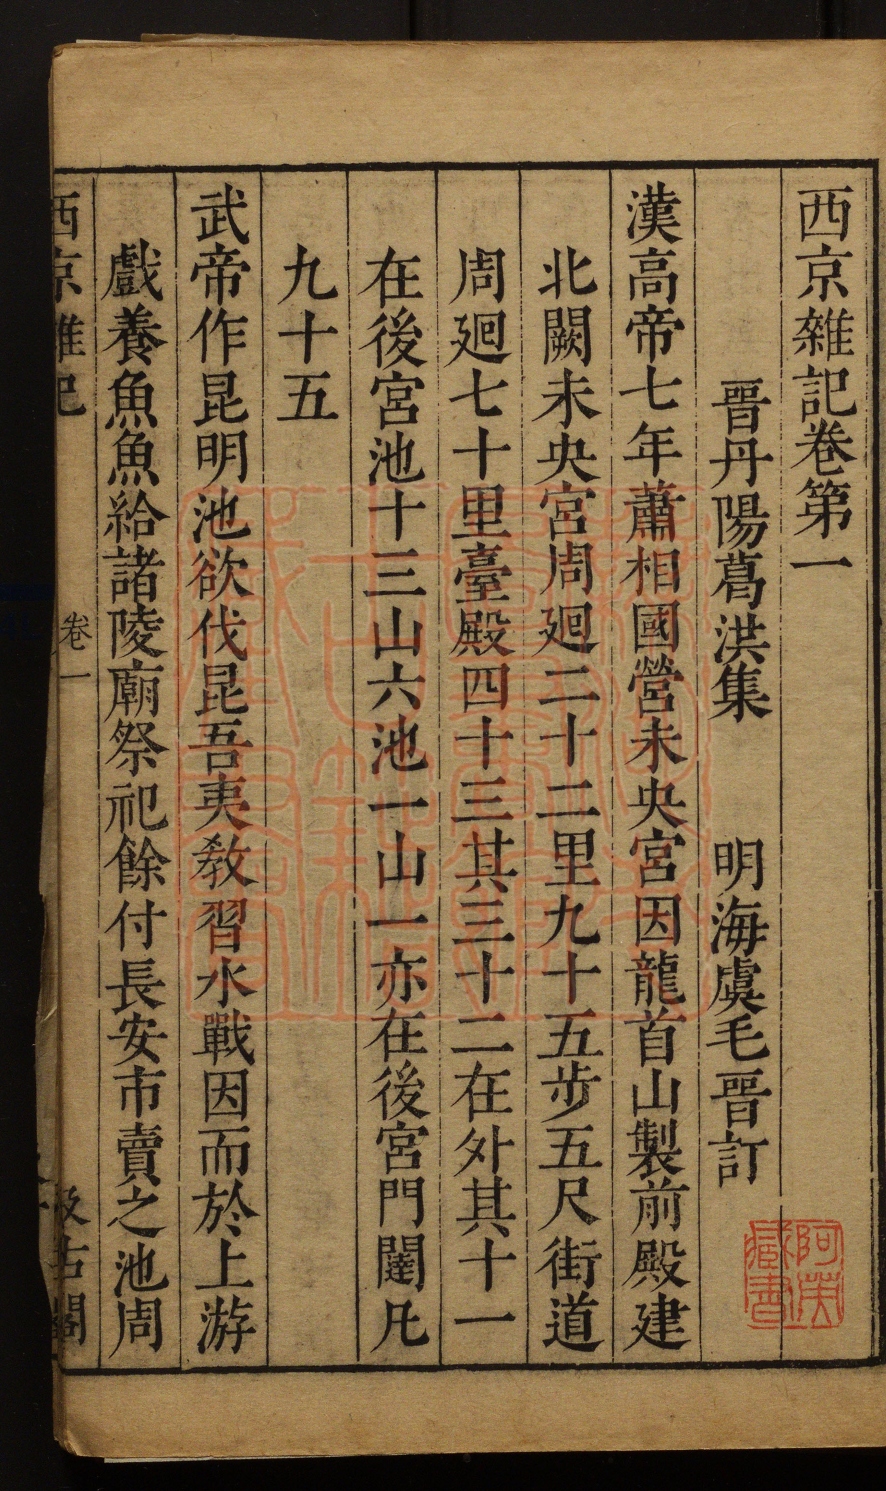 西京雜記卷第一
晉丹陽葛洪集　明海虞毛晉訂
漢高帝七年蕭相國營未央宮因龍首山製前殿建
北闕未央宮周廻二十二里九十五步五尺街道
周廻七十里臺殿四十三其三十二在外其十一
在後宮池十三山六池一山一亦在後宮門闥凡
九十五
武帝作昆明池欲伐昆吾夷教習水戰因而於上游
戲養魚魚給諸陵廟祭祀餘付長安市賣之池周
西京雜記　卷一　汲古閣